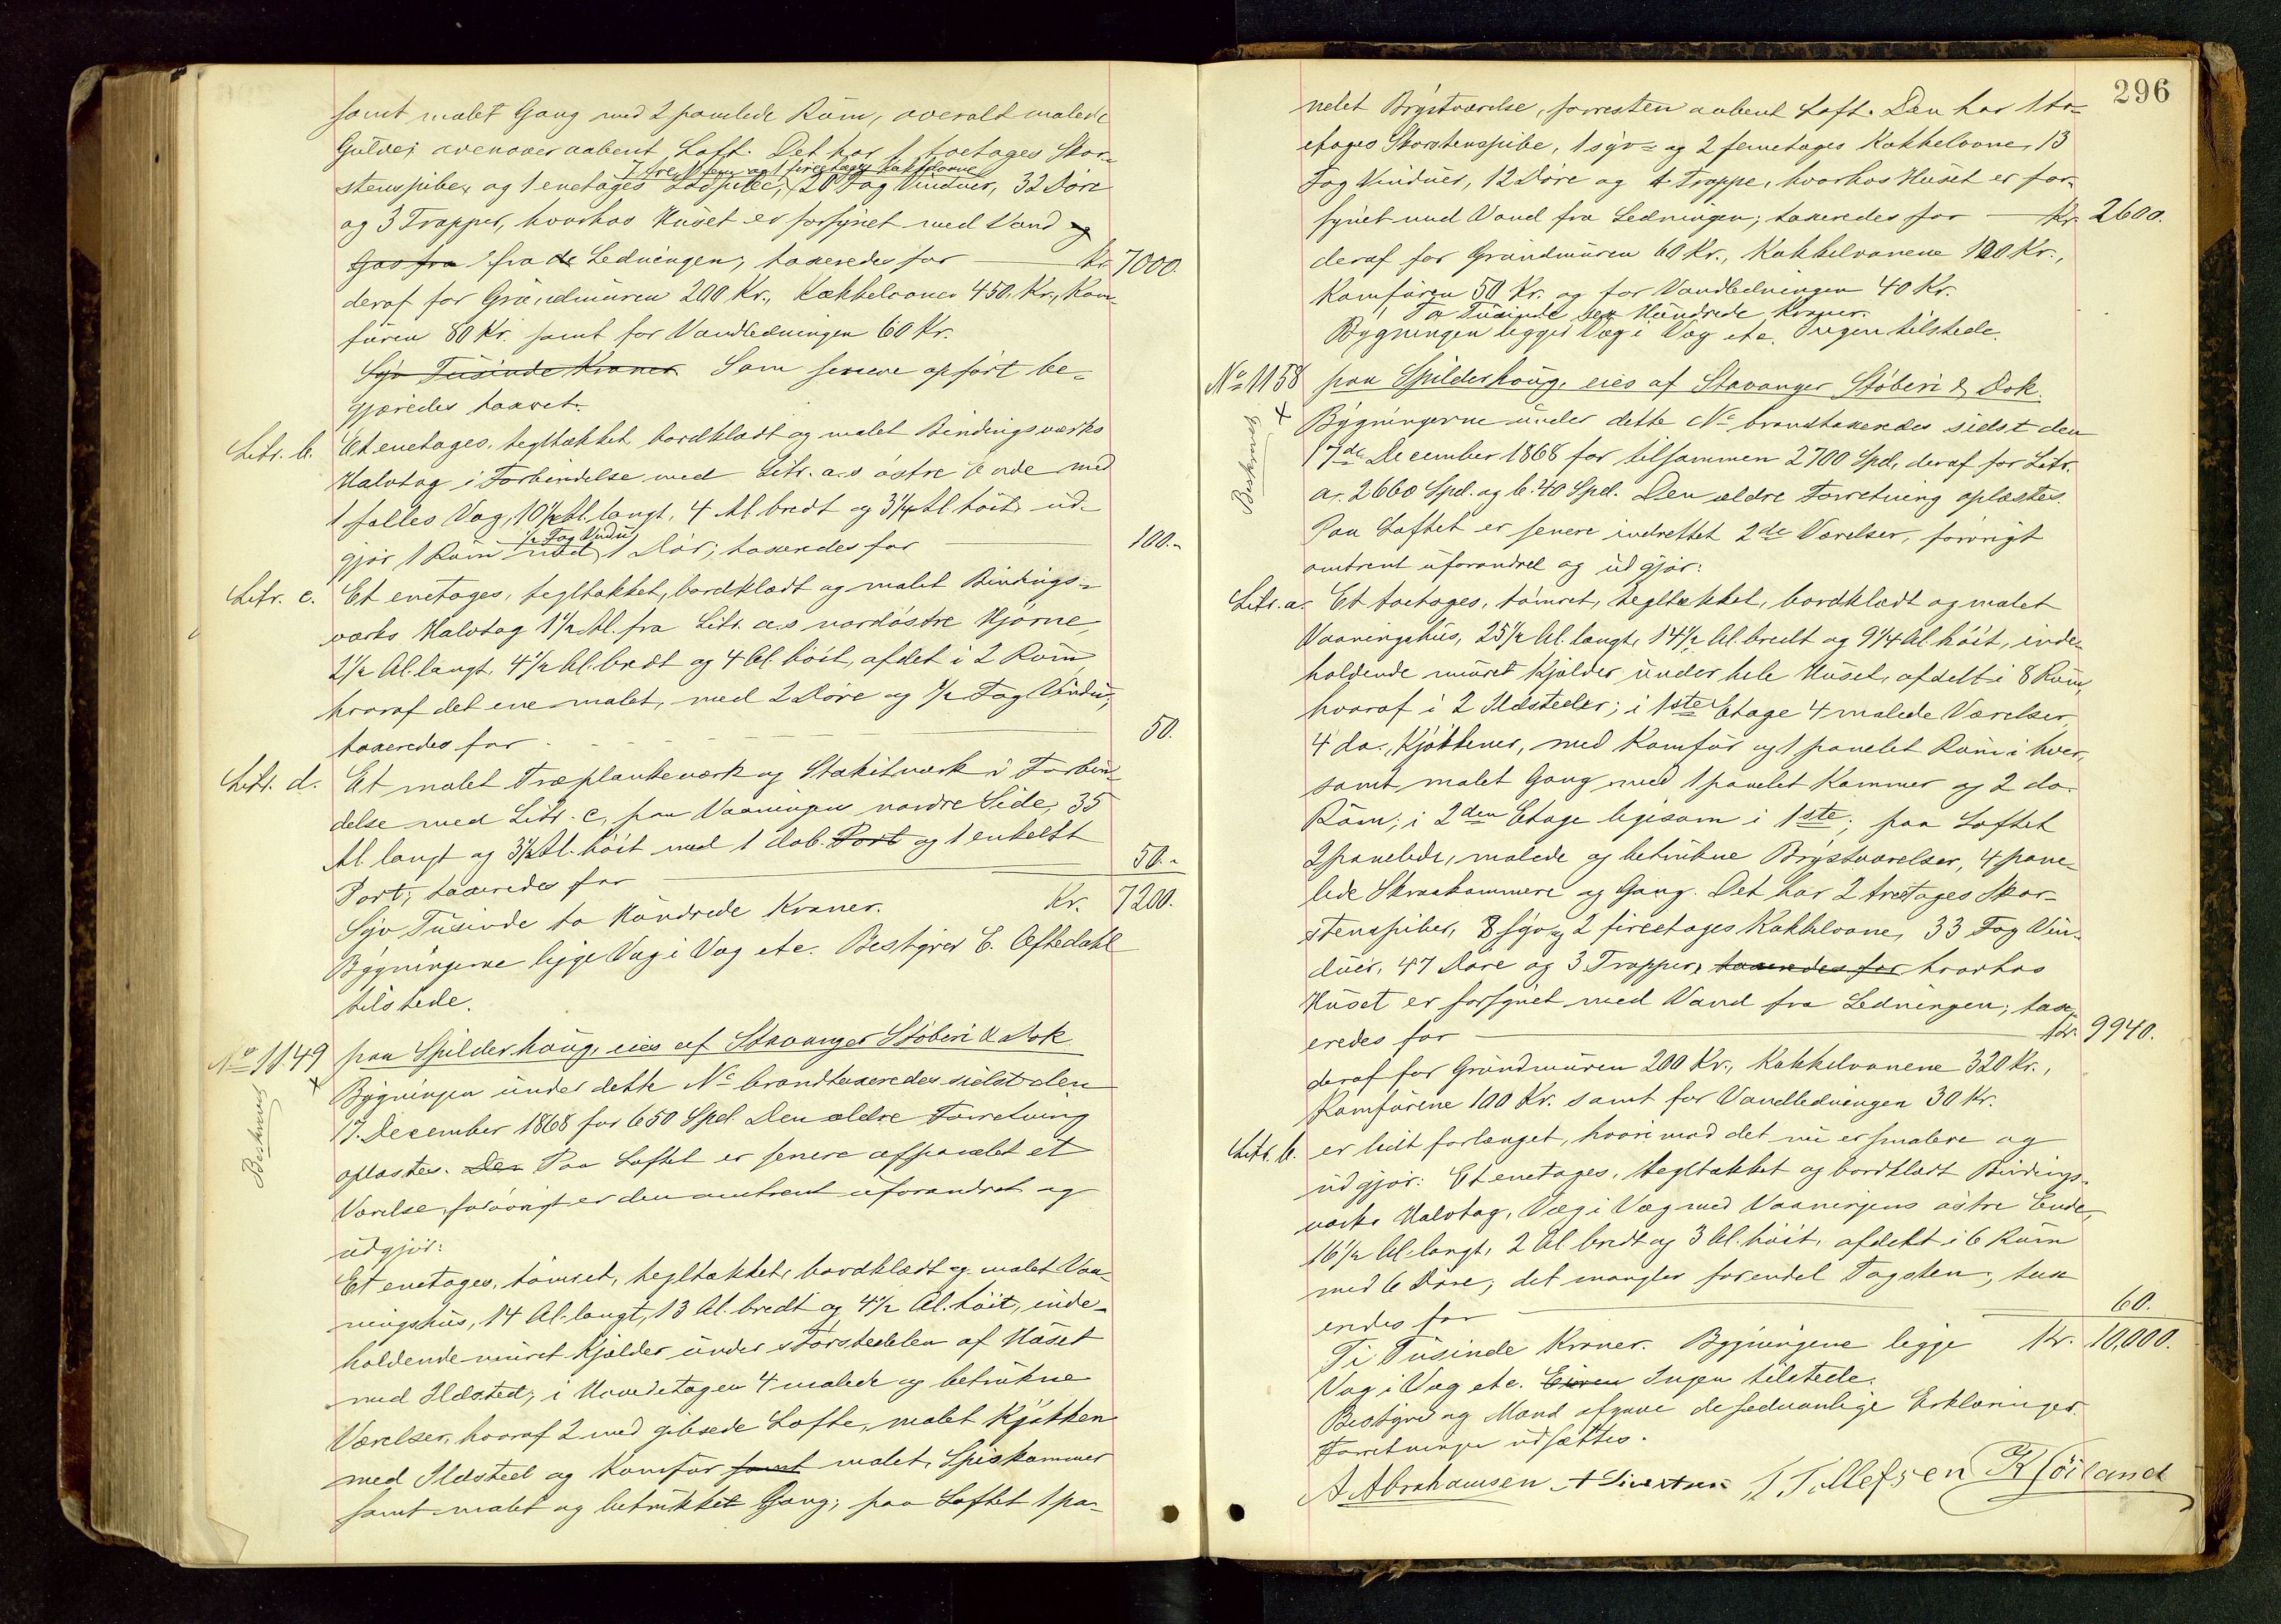 samt malet Gang med 2 panelede Rúm, overalt malede
Gúlve; ovenover aabent Loft. Det har 1 toetages Skor-
7 tre, 1 fem og 1 fireetages Kakkelovne
stenspibe, og 1 enetages , 20 Fag Vindúer, 32 Döre
og 3 Trapper, hvorhos Húset er forsÿnet med Vand og
Gas fra fra de Ledningen; taxeredes for — Kr. 7000.
deraf for Grúndmúren 200 Kr., Kakkelovner 450 Kr., Kom-
fúren 80 Kr. samt for Vandledningen 60 Kr.
Syv Túsinde Kroner Som senere opfört be-
gjæredes taxeret.
Litr. b. Et enetages, tegltækket bordklædt og malet Bindingsværks
Halvtag i Forbindelse med Litr. a.s östre Ende med
1 fælles Væg, 10 1/2 Al. langt, 4 Al. bredt og 3 1/4 Al. höit, ud-
1/2 Fag Vindú
gjör 1 Rúm med 1 Dör; taxeredes for — 100.-
Litr. c. Et enetages, tegltækket, bordklædt og malet Bindings-
værks Halvtag 1 1/2 Al. fra Litr. a.s nordöstre Hjörne,
2 1/2 Al. langt, 4 1/2 Al. bredt og 4 Al. höit, afdelt i 2 Rúm,
hvoraf det ene malet, med 2 Döre og 1/2 Fag Vindú;
taxeredes for — 50.
Litr. d. Et malet Træplankeværk og Stakitværk i Forbin-
delse med Litr. c, paa Vaaningens nordre Side, 35
Al. langt og 3 1/2 Al. höit med 1 dob. Port og 1 enkelt
Port; taxeredes for — 50.-
Syv Túsinde to Húndrede Kroner. Kr. 7200.
Bÿgningerne ligge Væg i Væg etc. Bestyrer E. Oftedahl
tilstede.
No 1149 paa Spilderhaúg, eies af Stavanger Stöberi & Dok
Beskrevet
Bygningen únder dette No brandtaxeredes sidst den
17. December 1868 for 650 Spd. Den ældre Forretning
oplæstes. Den Paa Loftet er senere afpanelet et
Værelse, forövrigt er den omtrent úforandret og
údgjör:
Et enetages, tömret, tegltækket, bordklædt og malet Vaa-
ningshús, 14 Al. langt, 13 Al. bredt og 4 1/2 Al. höit, inde-
holdende múret Kjælder únder Störstedelen af Húset
med Ildsted; i Hovedetagen 4 malede og betrúkne
Værelser, hvoraf 2 med gibsede Lofte, malet Kjökken
med Ildsted og Komfúr samt malet Spiskammer
samt malet og betrúkket Gang; paa Loftet 1 pa-
296
nelet Brÿstværelse, forresten aabent Loft. Den har 1 to-
etages Skorstenspibe, 1 syv- og 2 femetages Kakkelovne, 13
Fag Vindúer, 12 Döre og 1 Trappe, hvorhos Húset er for-
sÿnet med Vand fra Ledningen; taxeredes for — Kr. 2600.
deraf for Grúndmúren 60 Kr., Kakkelovnene 120 Kr.,
Komfúren 50 Kr. og for Vandledningen 40 Kr.
To Túsinde sex Húndrede Kroner.
Bygningen ligger Væg i Væg etc. Ingen tilstede.
No 1158 paa Spilderhaúg, eies af Stavanger Stöberi & Dok.
Beskrevet
Bÿgningerne únder dette No brandtaxeredes sidst den
17de December 1868 for tilsammen 2700 Spd., deraf for Litr.
a. 2660 Spd. og b. 40 Spd. Den ældre Forretning oplæstes.
Paa Loftet er senere indrettet 2de Værelser, forövrigt
omtrent úforandret og údgjör:
Litr. a. Et toetages, tömret, tegltækket, bordklædt og malet
Vaaningshús, 25 1/2 Al. langt, 14 1/2 Al. bredt og 9 1/4 Al. höit, inde-
holdende múret Kjælder únder hele Húset, afdelt i 8 Rúm,
hvoraf i 2 Ildsteder; i 1ste Etage 4 malede Værelser,
4 do. Kjökkener, med Komfúr og 1 panelet Rúm i hver,
samt malet Gang med 1 panelet Kammer og 2 do.
Rúm; i 2den Etage ligesom i 1ste; paa Loftet
2 panelede, malede og betrúkne Brÿstværelser, 4 pane-
lede Skraakammere og Gang. Det har 2 treetages Skor-
stenspiber, 8 syv og 2 fireetages Kakkelovne, 33 Fag Vin-
dúer, 47 Döre og 3 Trapper, taxeredes for hvorhos
Húset er forsÿnet med Vand fra Ledningen; tax-
eredes for — Kr. 9940.
deraf for Grúndmúren 200 Kr., Kakkelovnene 320 Kr.,
Komfúrene 100 Kr. samt for Vandledningen 30 Kr.
Litr. b. er lidt forlænget, hvorimod det nú er smalere og
údgjör: Et enetages, tegltækket og bordklædt Bindings-
værks Halvtag, Væg i Væg med Vaaningens östre Ende,
16 1/2 Al. langt, 2 Al. bredt og 3 Al. höit, afdelt i 6 Rúm
med 6 Döre; det mangler forendel Tagsten; tax-
eredes for — 60.
Ti Túsinde Kroner. Bygningene ligge Kr. 10,000.
Væg i Væg etc. Eieren Ingen tilstede.
Bestyrer og Mænd afgave de sædvanlige Erklæringer.
Forretningen údsættes.
A Abrahamsen A Sivertsen T. Tollefsen K Höiland